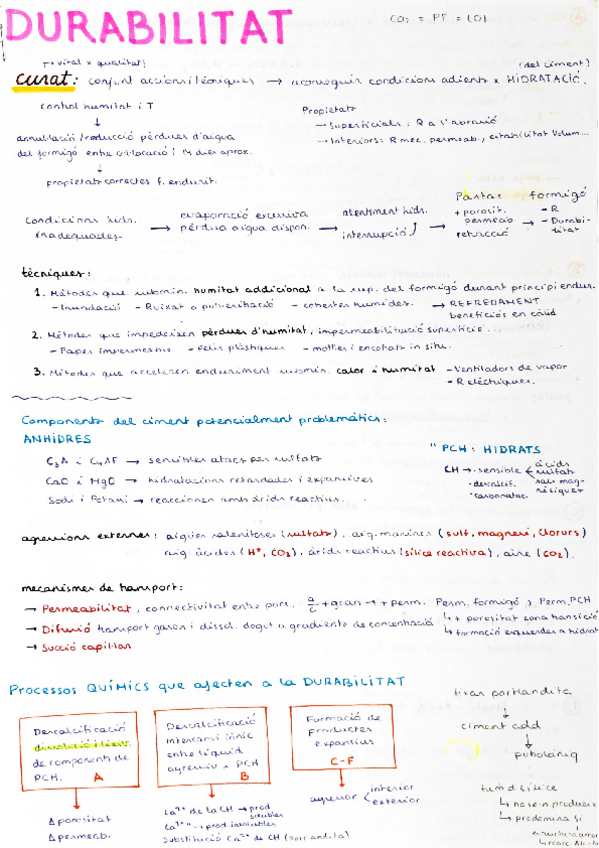 DURABILITAT
curat: conjunt accions i tècniques → aconseguir condicions adients x HIDRATACIÓ.
(del ciment)
control humitat i T
Propietats
→ Superficials: R a l'abrasió
→ Interiors: R mec. permeab., estabilitat Volum...
anul·lació/reducció pèrdues d'aigua
del formigó entre col·locació i
propietats correctes f. endurit.
Condicions hidr. inadequades → evaporació excessiva
pèrdua aigua dispon. → alentiment hidr.
interrupció
Pasta:
+ porosit.
permeab
retracció
formigó
- R
- Durabi-
litat
tècniques:
1. Mètodes que submin. humitat addicional a la sup. del formigó durant principi endur.
- Inundació - Ruixat o pulverització - cobertes humides. → REFREDAMENT
beneficiós en calid
2. Mètodes que impedeixen pèrdues d'humitat, impermeabilització superfície.
- Paper impermeable - Films plàstiques - motlles i encofrats in situ.
3. Mètodes que acceleren enduriment submin. calor i humitat - Ventiladors de vapor
- R elèctriques.
Components del ciment potencialment problemàtics:
ANHIDRES
C₃A i C₄AF → sensibles atacs per sulfats
CaO i MgO → hidratacions retardades i expansives
Sodi i Potassi → reaccionen amb àrids reactius.
PCH: HIDRATS
CH → sensible
àcids
sulfats
sals mag-
nèsiques
· descalcif.
· carbonatac.
agressions externes: aigües selenitoses (sulfats), aig. marines (sulf, magnesi, clorurs)
aig. àcides (H⁺, CO₂), àrids reactius (sílice reactiva), aire (CO₂).
mecanismes de transport:
→ Permeabilitat, connectivitat entre pors. a/c + gran → + perm. Perm. formigó > Perm. PCH
→ Difusió transport gasos i dissol. degut a gradients de concentració
↳ + porositat zona transició
↳ formació esquerdes a hidrat
→ Succió capil·lar
Processos QUÍMICS que afecten a la DURABILITAT
Descalcificació
dissolució i lixiv.
de components de
PCH. A
Δ porositat
Δ permeab.
Descalcificació
intercanvi iònic
entre líquid
agressiu i PCH
B
Ca²⁺ de la CH → prod
solubles
Ca²⁺ " → prod. insolubles
Substitució Ca²⁺ de CH
Formació de
productes
expansius
C-F
agressor
interior
exterior
fixar portlandita
ciment add
putzolànic
fum de sílice
↳ predomina si